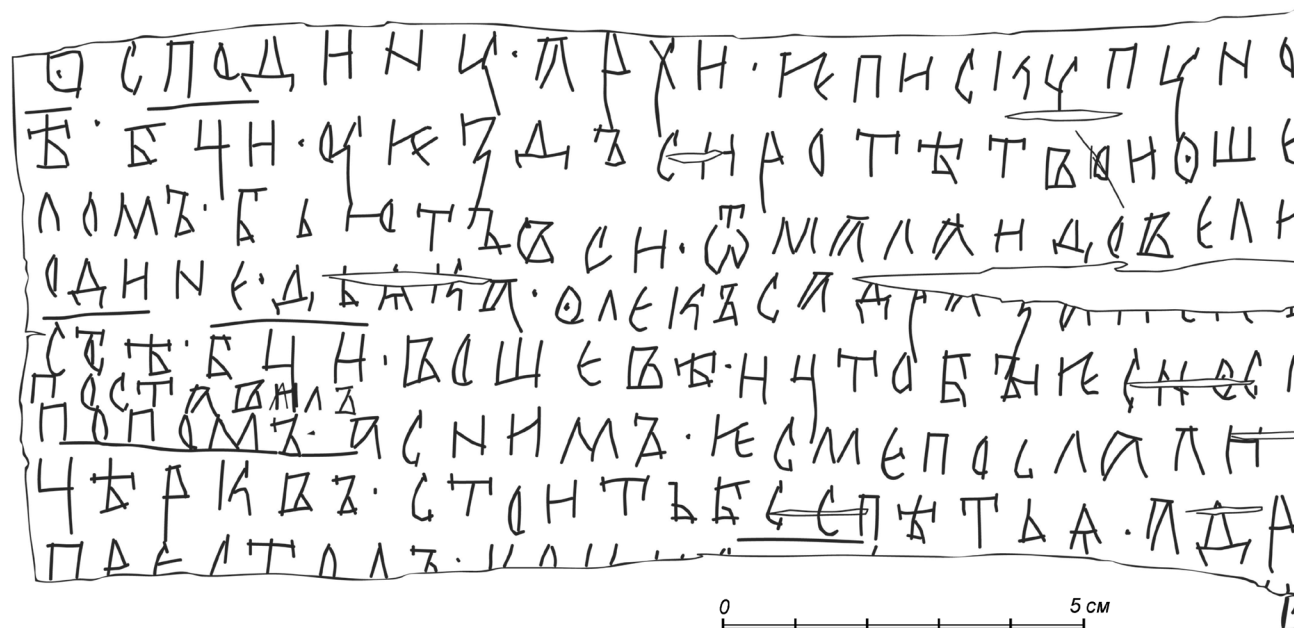 осподину · архи · ѥпискупу но
ѣ · бци · оу ѥздъ сиротѣ твои оше
ломъ · бьютъ вси · ѿ мала и до вели
одине · дьꙗка · олекъсандра
стѣ · бци · вошевѣ · и цтобъ ѥси ос
поставилъ
попомъ · а с нимъ · ѥсме послали
цѣрквъ · стоитъ бес пѣтьꙗ · а др
престолъ ·